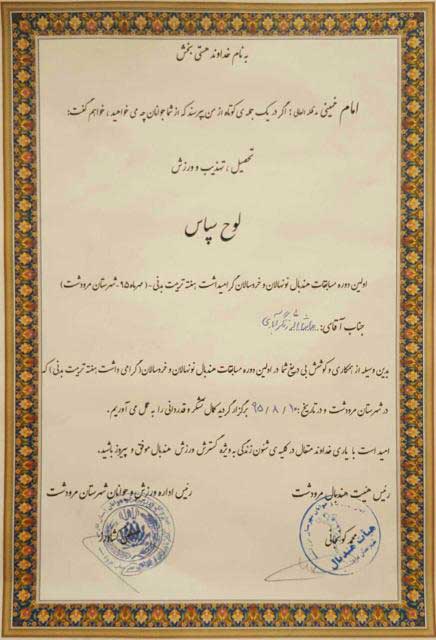 به نام خداوند هستی بخش
امام خمینی مدظله العالی : اگر در یک جمله ی کوتاه از من بپرسند که از شما جوانان چه می خواهید ، خواهم گفت:
تحصیل ، تهذیب و ورزش
لوح سپاس
اولین دوره مسابقات هندبال نونهالان و خردسالان گرامیداشت هفته تربیت بدنی - (مهرماه ۹۵ - شهرستان مرودشت)
جناب آقای:
بدین وسیله از همکاری و کوشش بی دریغ شما در اولین دوره مسابقات هندبال نونهالان و خردسالان (گرامی داشت هفته تربیت بدنی) که
در شهرستان مرودشت و در تاریخ: ۹۵/۸/۱۰ برگزار گردید کمال تشکر و قدردانی را به عمل می آوریم.
امید است با یاری خداوند متعال در کلیه ی شئون زندگی به ویژه گسترش ورزش هندبال موفق و پیروز باشید.
رئیس هیئت هندبال مرودشت
رئیس اداره ورزش و جوانان شهرستان مرودشت
هیات هندبال